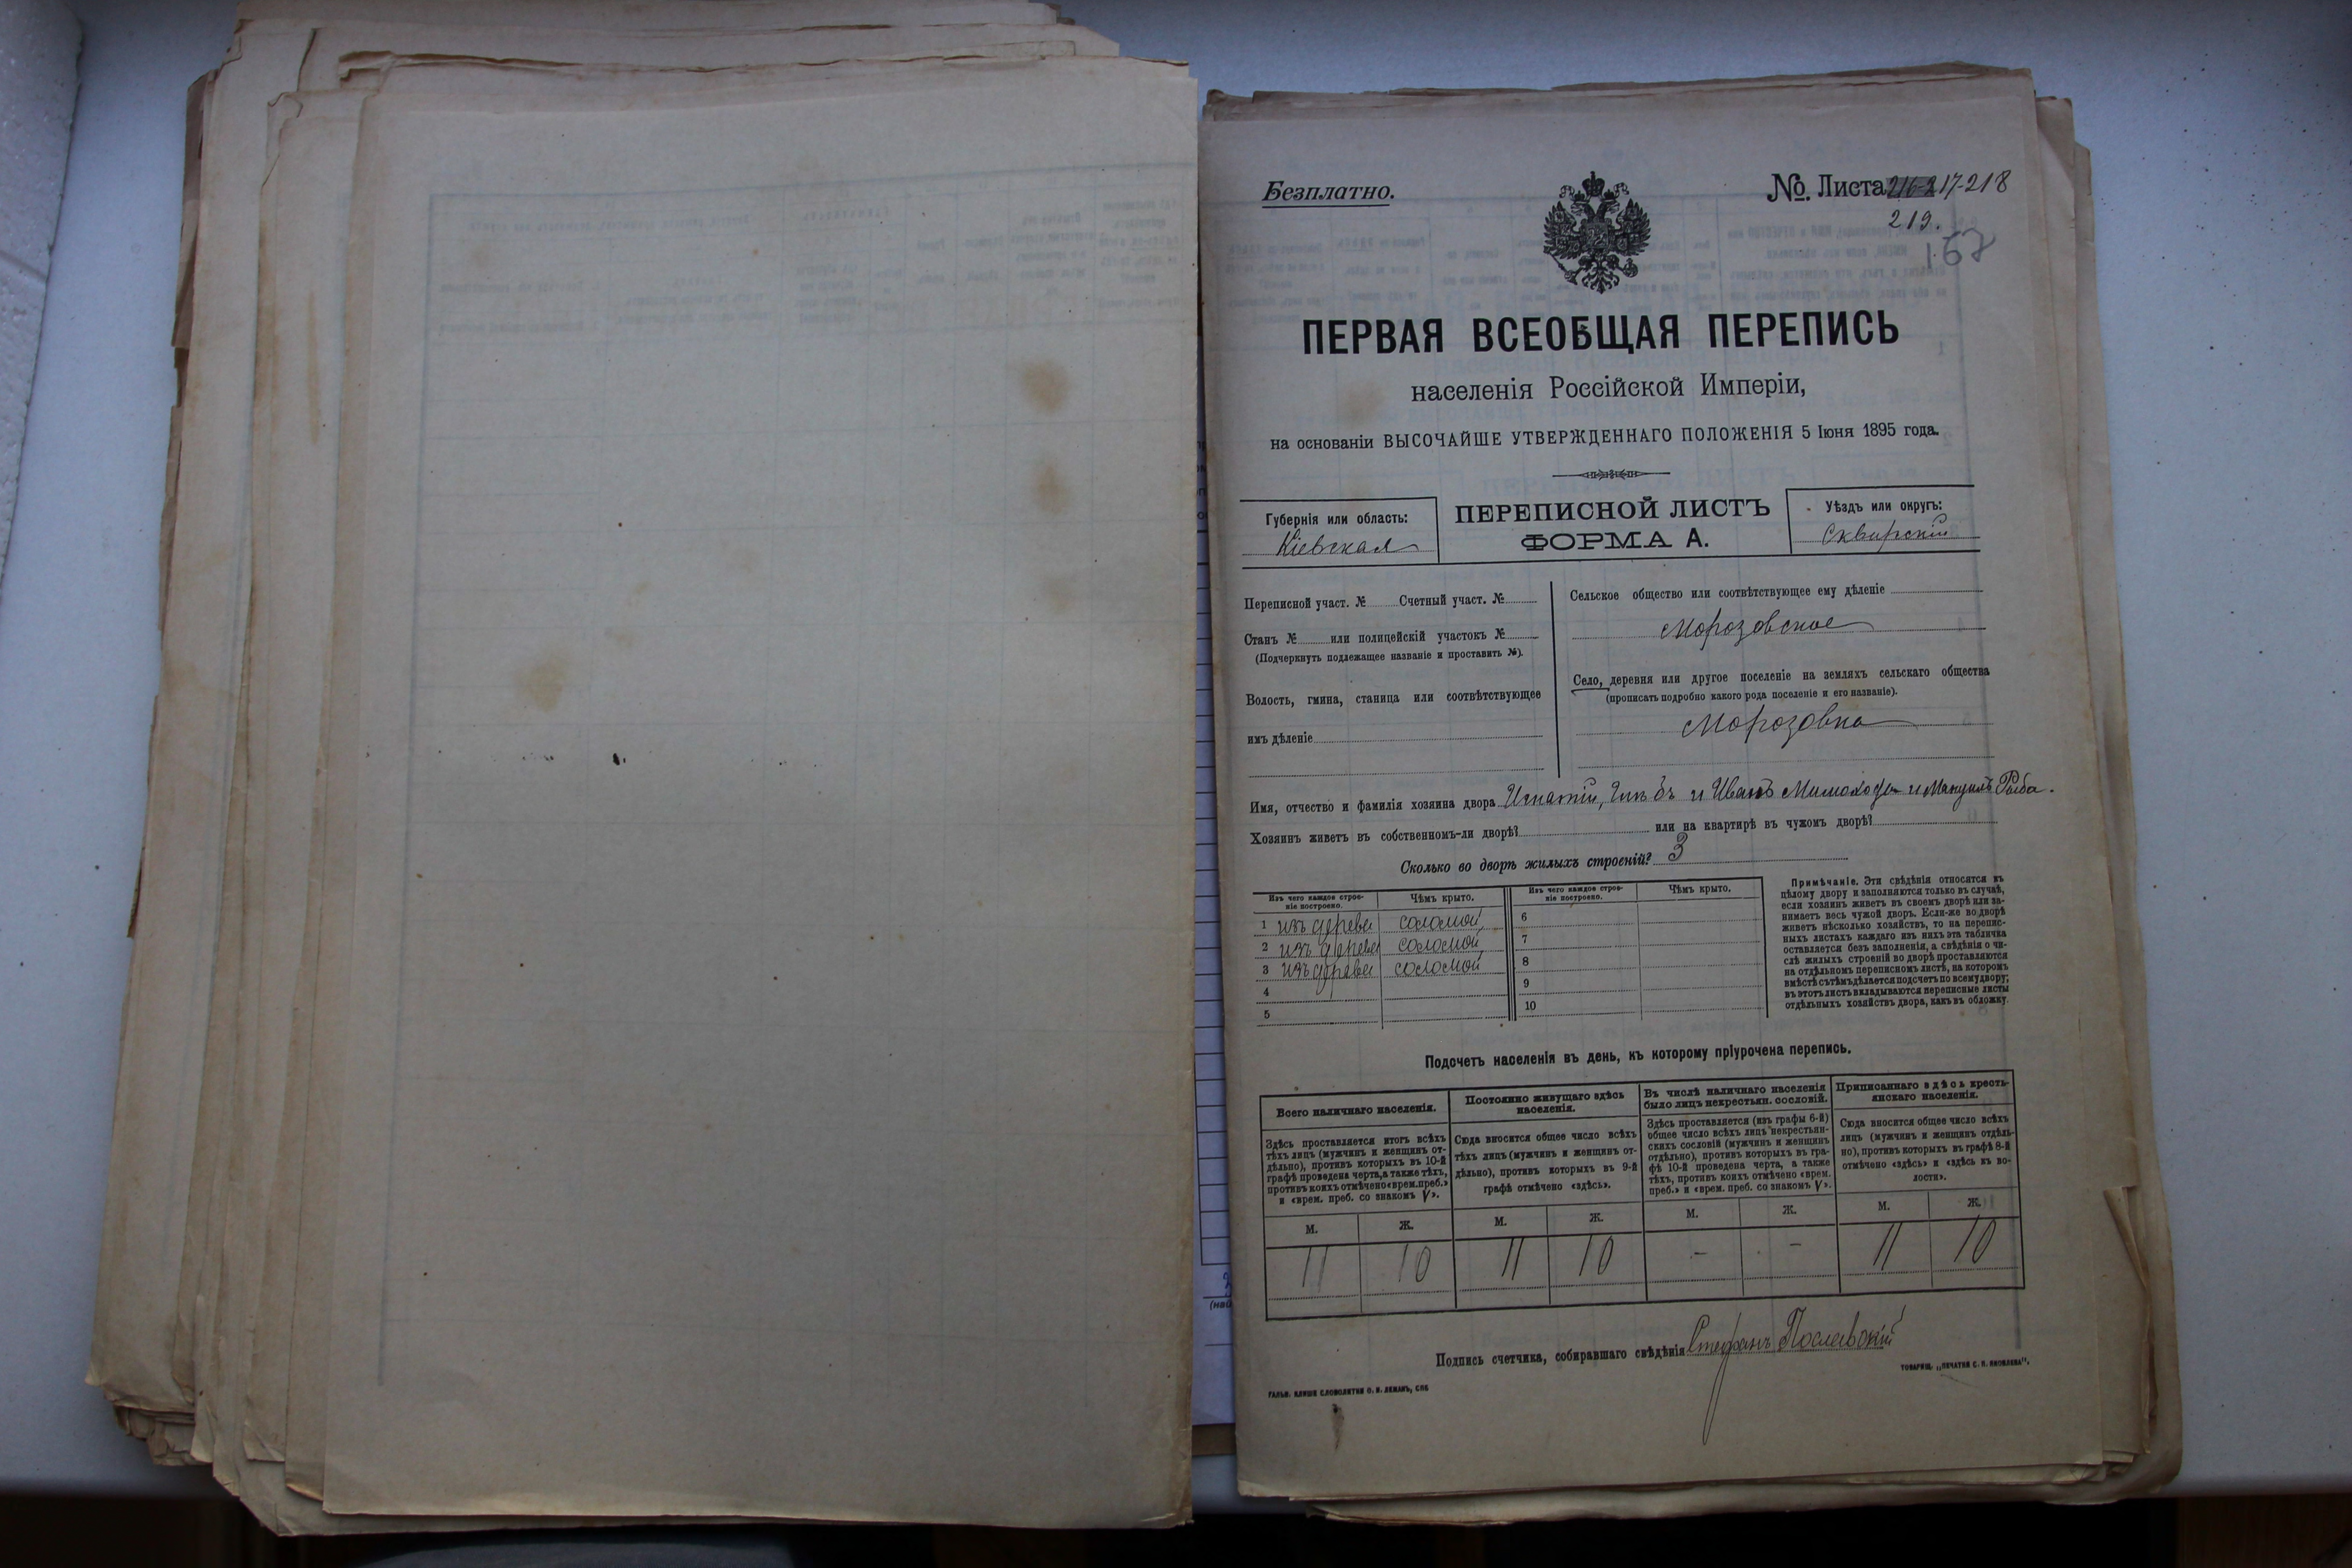 Безплатно.
№ Листа 216-217-218
219.
167
ПЕРВАЯ ВСЕОБЩАЯ ПЕРЕПИСЬ
населенія Россійской Имперіи,
на основаніи ВЫСОЧАЙШЕ УТВЕРЖДЕННАГО ПОЛОЖЕНІЯ 5 Іюня 1895 года.
Губернія или область:
Кіевская
ПЕРЕПИСНОЙ ЛИСТЪ
ФОРМА А.
Уѣздъ или округъ:
Сквирскій
Переписной участ. № Счетный участ. №
Станъ № или полицейскій участокъ №
(Подчеркнуть подлежащее названіе и проставить №).
Волость, гмина, станица или соотвѣтствующее
имъ дѣленіе
Сельское общество или соотвѣтствующее ему дѣленіе
Морозовское
Село, деревня или другое поселеніе на земляхъ сельскаго общества
(прописать подробно какого рода поселеніе и его названіе).
Морозовка
Имя, отчество и фамилія хозяина двора Игнатій, и Иванъ и Мануилъ Рыба.
Хозяинъ живетъ въ собственномъ-ли дворѣ? или на квартирѣ въ чужомъ дворѣ?
Сколько во дворѣ жилыхъ строеній? 3
Изъ чего каждое строеніе построено. Чѣмъ крыто. Изъ чего каждое строеніе построено. Чѣмъ крыто.
1 изъ дерева соломой 6
2 изъ дерева соломой 7
3 изъ дерева соломой 8
4 9
5 10
Примѣчаніе. Эти свѣдѣнія относятся къ
цѣлому двору и заполняются только въ случаѣ,
если хозяинъ живетъ въ своемъ дворѣ или за-
нимаетъ весь чужой дворъ. Если-же во дворѣ
живетъ нѣсколько хозяйствъ, то на перепис-
ныхъ листахъ каждаго изъ нихъ эта табличка
оставляется безъ заполненія, а свѣдѣнія о чи-
слѣ жилыхъ строеній во дворѣ проставляются
на отдѣльномъ переписномъ листѣ, на которомъ
вмѣстѣ съ тѣмъ дѣлается подсчетъ по всему двору;
въ этотъ листъ вкладываются переписные листы
отдѣльныхъ хозяйствъ двора, какъ въ обложку.
Подсчетъ населенія въ день, къ которому пріурочена перепись.
Всего наличнаго населенія.
Здѣсь проставляется итогъ всѣхъ
тѣхъ лицъ (мужчинъ и женщинъ от-
дѣльно), противъ которыхъ въ 10-й
графѣ проведена черта, а также тѣхъ,
противъ коихъ отмѣчено «врем. преб.»
и «врем. преб. со знакомъ V».
Постоянно живущаго здѣсь
населенія.
Сюда вносится общее число всѣхъ
тѣхъ лицъ (мужчинъ и женщинъ от-
дѣльно), противъ которыхъ въ 9-й
графѣ отмѣчено «здѣсь».
Въ числѣ наличнаго населенія
было лицъ некрестьян. сословій.
Здѣсь проставляется (изъ графы 6-й)
общее число всѣхъ лицъ некрестьян-
скихъ сословій (мужчинъ и женщинъ
отдѣльно), противъ которыхъ въ гра-
фѣ 10-й проведена черта, а также
тѣхъ, противъ коихъ отмѣчено «врем.
преб.» и «врем. преб. со знакомъ V».
Приписаннаго здѣсь кресть-
янскаго населенія.
Сюда вносится общее число всѣхъ
лицъ (мужчинъ и женщинъ отдѣль-
но), противъ которыхъ въ графѣ 8-й
отмѣчено «здѣсь» и «здѣсь къ во-
лости».
М. Ж. М. Ж. М. Ж. М. Ж.
11 10 11 10 - - 11 10
Подпись счетчика, собиравшаго свѣдѣнія Стефанъ Пославскій
ГАЛЬВ. КЛИШЕ СЛОВОЛИТНИ О. И. ЛЕМАНЪ, СПБ
ТОВАРИЩ. „ПЕЧАТНЯ С. П. ЯКОВЛЕВА".